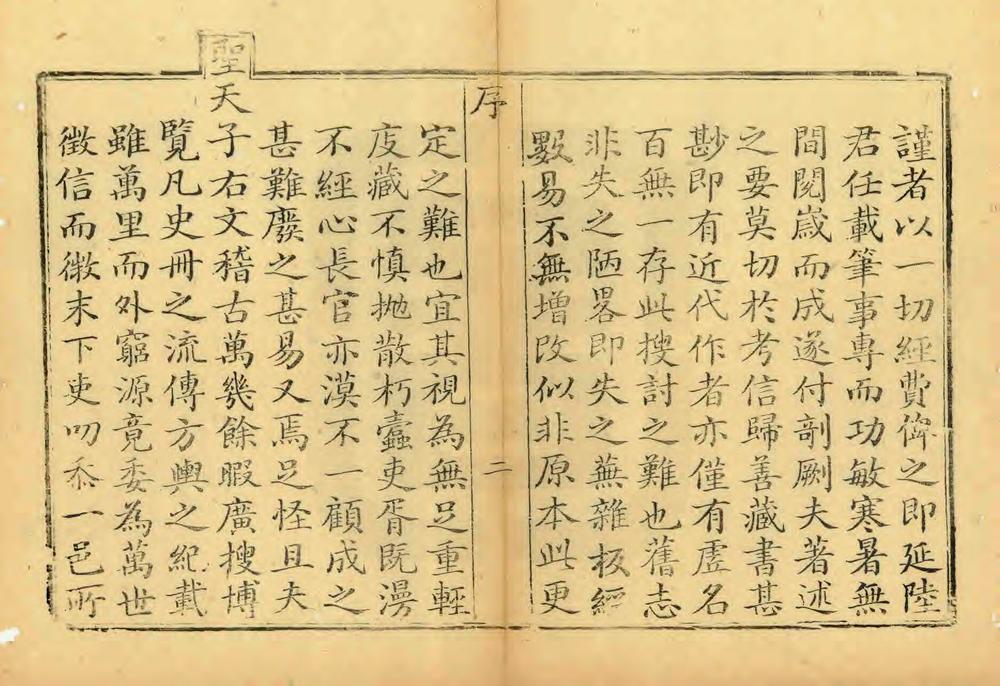 謹者以一切經費俾之即延陸
君任載筆事專而功敏寒暑無
間閱歲而成遂付剞劂夫著述
之要莫切於考信歸善藏書甚
尠即有近代作者亦僅有虛名
百無一存此搜討之難也舊志
非失之陋畧即失之蕪雜板經
數易不無增改似非原本此更
序
二
定之難也宜其視為無足重輕
庋藏不慎拋散朽蠹吏胥既漫
不經心長官亦漠不一顧成之
甚難廢之甚易又焉足怪且夫
聖天
子右文稽古萬幾餘暇廣搜博
覽凡史冊之流傳方輿之紀載
雖萬里而外窮源竟委為萬世
徵信而微末下吏叨忝一邑所